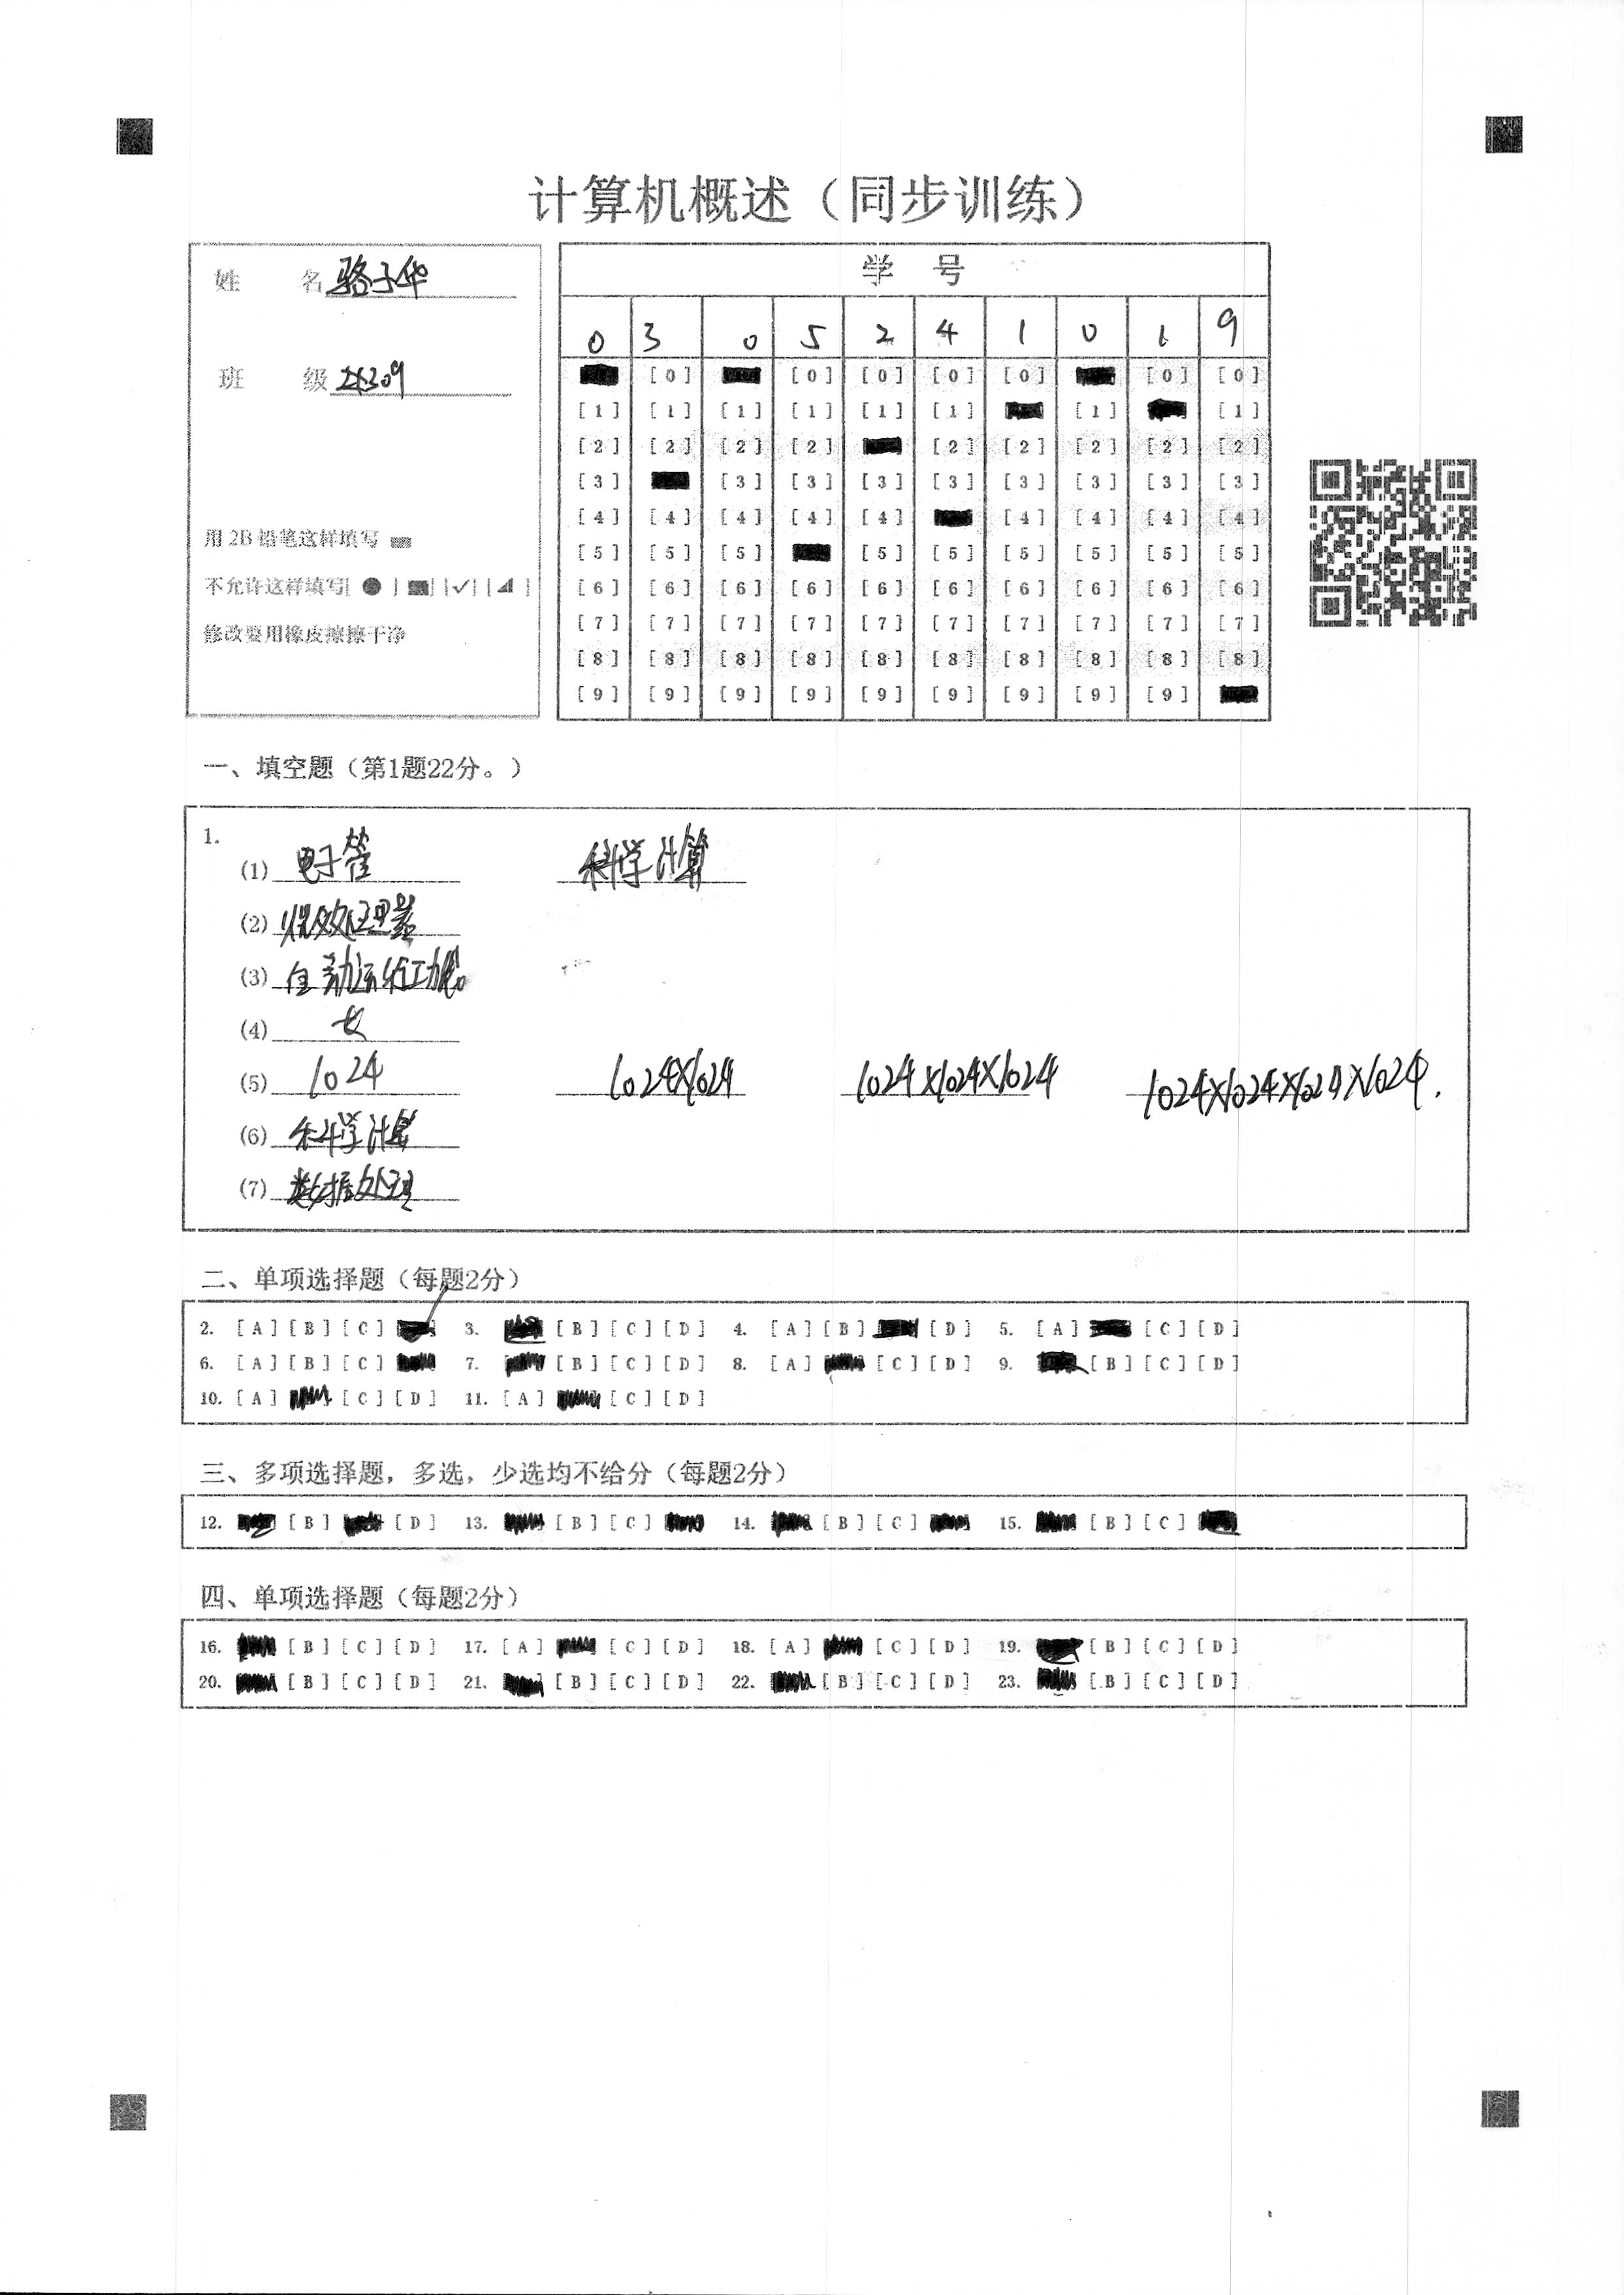 计算机概述（同步训练）
姓 名 骆子华
班 级
用 2B 铅笔这样填写
不允许这样填写[ ● ] [✓] [ ]
修改要用橡皮擦擦干净
学 号
0 3 0 5 2 4 1 0 1 9
[0] [0] [0] [0] [0] [0] [0]
[1] [1] [1] [1] [1] [1] [1] [1]
[2] [2] [2] [2] [2] [2] [2] [2] [2]
[3] [3] [3] [3] [3] [3] [3] [3] [3]
[4] [4] [4] [4] [4] [4] [4] [4] [4]
[5] [5] [5] [5] [5] [5] [5] [5] [5]
[6] [6] [6] [6] [6] [6] [6] [6] [6] [6]
[7] [7] [7] [7] [7] [7] [7] [7] [7] [7]
[8] [8] [8] [8] [8] [8] [8] [8] [8] [8]
[9] [9] [9] [9] [9] [9] [9] [9] [9]
一、填空题（第1题22分。）
1.
(1) 电子管 科学计算
(2) 微处理器
(3) 自动运行功能
(4)
(5) 1024 1024×1024 1024×1024×1024 1024×1024×1024×1024.
(6) 科学计算
(7) 数据处理
二、单项选择题（每题2分）
2. [A] [B] [C] 3. [B] [C] [D] 4. [A] [B] [D] 5. [A] [C] [D]
6. [A] [B] [C] 7. [B] [C] [D] 8. [A] [C] [D] 9. [B] [C] [D]
10. [A] [C] [D] 11. [A] [C] [D]
三、多项选择题，多选，少选均不给分（每题2分）
12. [B] [D] 13. [B] [C] 14. [B] [C] 15. [B] [C]
四、单项选择题（每题2分）
16. [B] [C] [D] 17. [A] [C] [D] 18. [A] [C] [D] 19. [B] [C] [D]
20. [B] [C] [D] 21. [B] [C] [D] 22. [B] [C] [D] 23. [B] [C] [D]